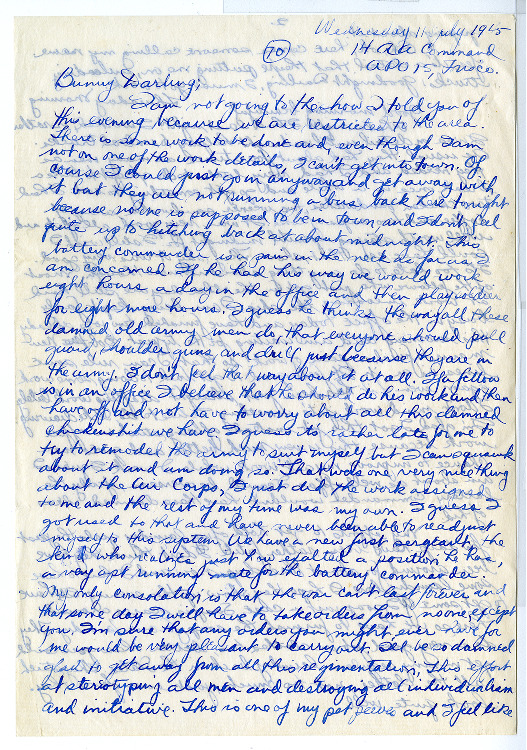 Wednesday 11 July 1945
(70)
14 AA Command
APO 75, Frisco.
Bunny Darling;
I am not going to the show I told you of
this evening because we are restricted to the area.
There is some work to be done and, even though I am
not on one of the work details, I can't get into town. Of
course I could just go in anyway and get away with
it but they are not running a bus back here tonight
because no one is supposed to be in town and I don't feel
quite up to hitching back at about midnight. This
battery commander is a pain in the neck as far as I
am concerned. If he had his way we would work
eight hours a day in the office and then play soldier
for eight more hours. I guess he thinks the way all these
damned old army men do, that everyone should pull
guard, shoulder guns, and drill just because they are in
the army. I don't feel that way about it at all. If a fellow
is in an office I believe that he should do his work and then
have off and not have to worry about all this damned
chickenshit we have. I guess its rather late for me to
try to remodel the army to suit myself but I can squawk
about it and am doing so. That was one very nice thing
about the Air Corps, I just did the work assigned
to me and the rest of my time was my own. I guess I
got used to that and have never been able to readjust
myself to this system. We have a new first sergeant, the
kind who realizes just how exalted a position he has,
a very apt running mate for the battery commander.
My only consolation is that the war can't last forever and
that some day I will have to take orders from no one, except
you. I'm sure that any orders you might ever have for
me would be very pleasant to carry out. I'll be so damned
glad to get away from all this regimentation, this effort
at stereotyping all men and destroying all individualism
and initiative. This is one of my pet peeves and I feel like